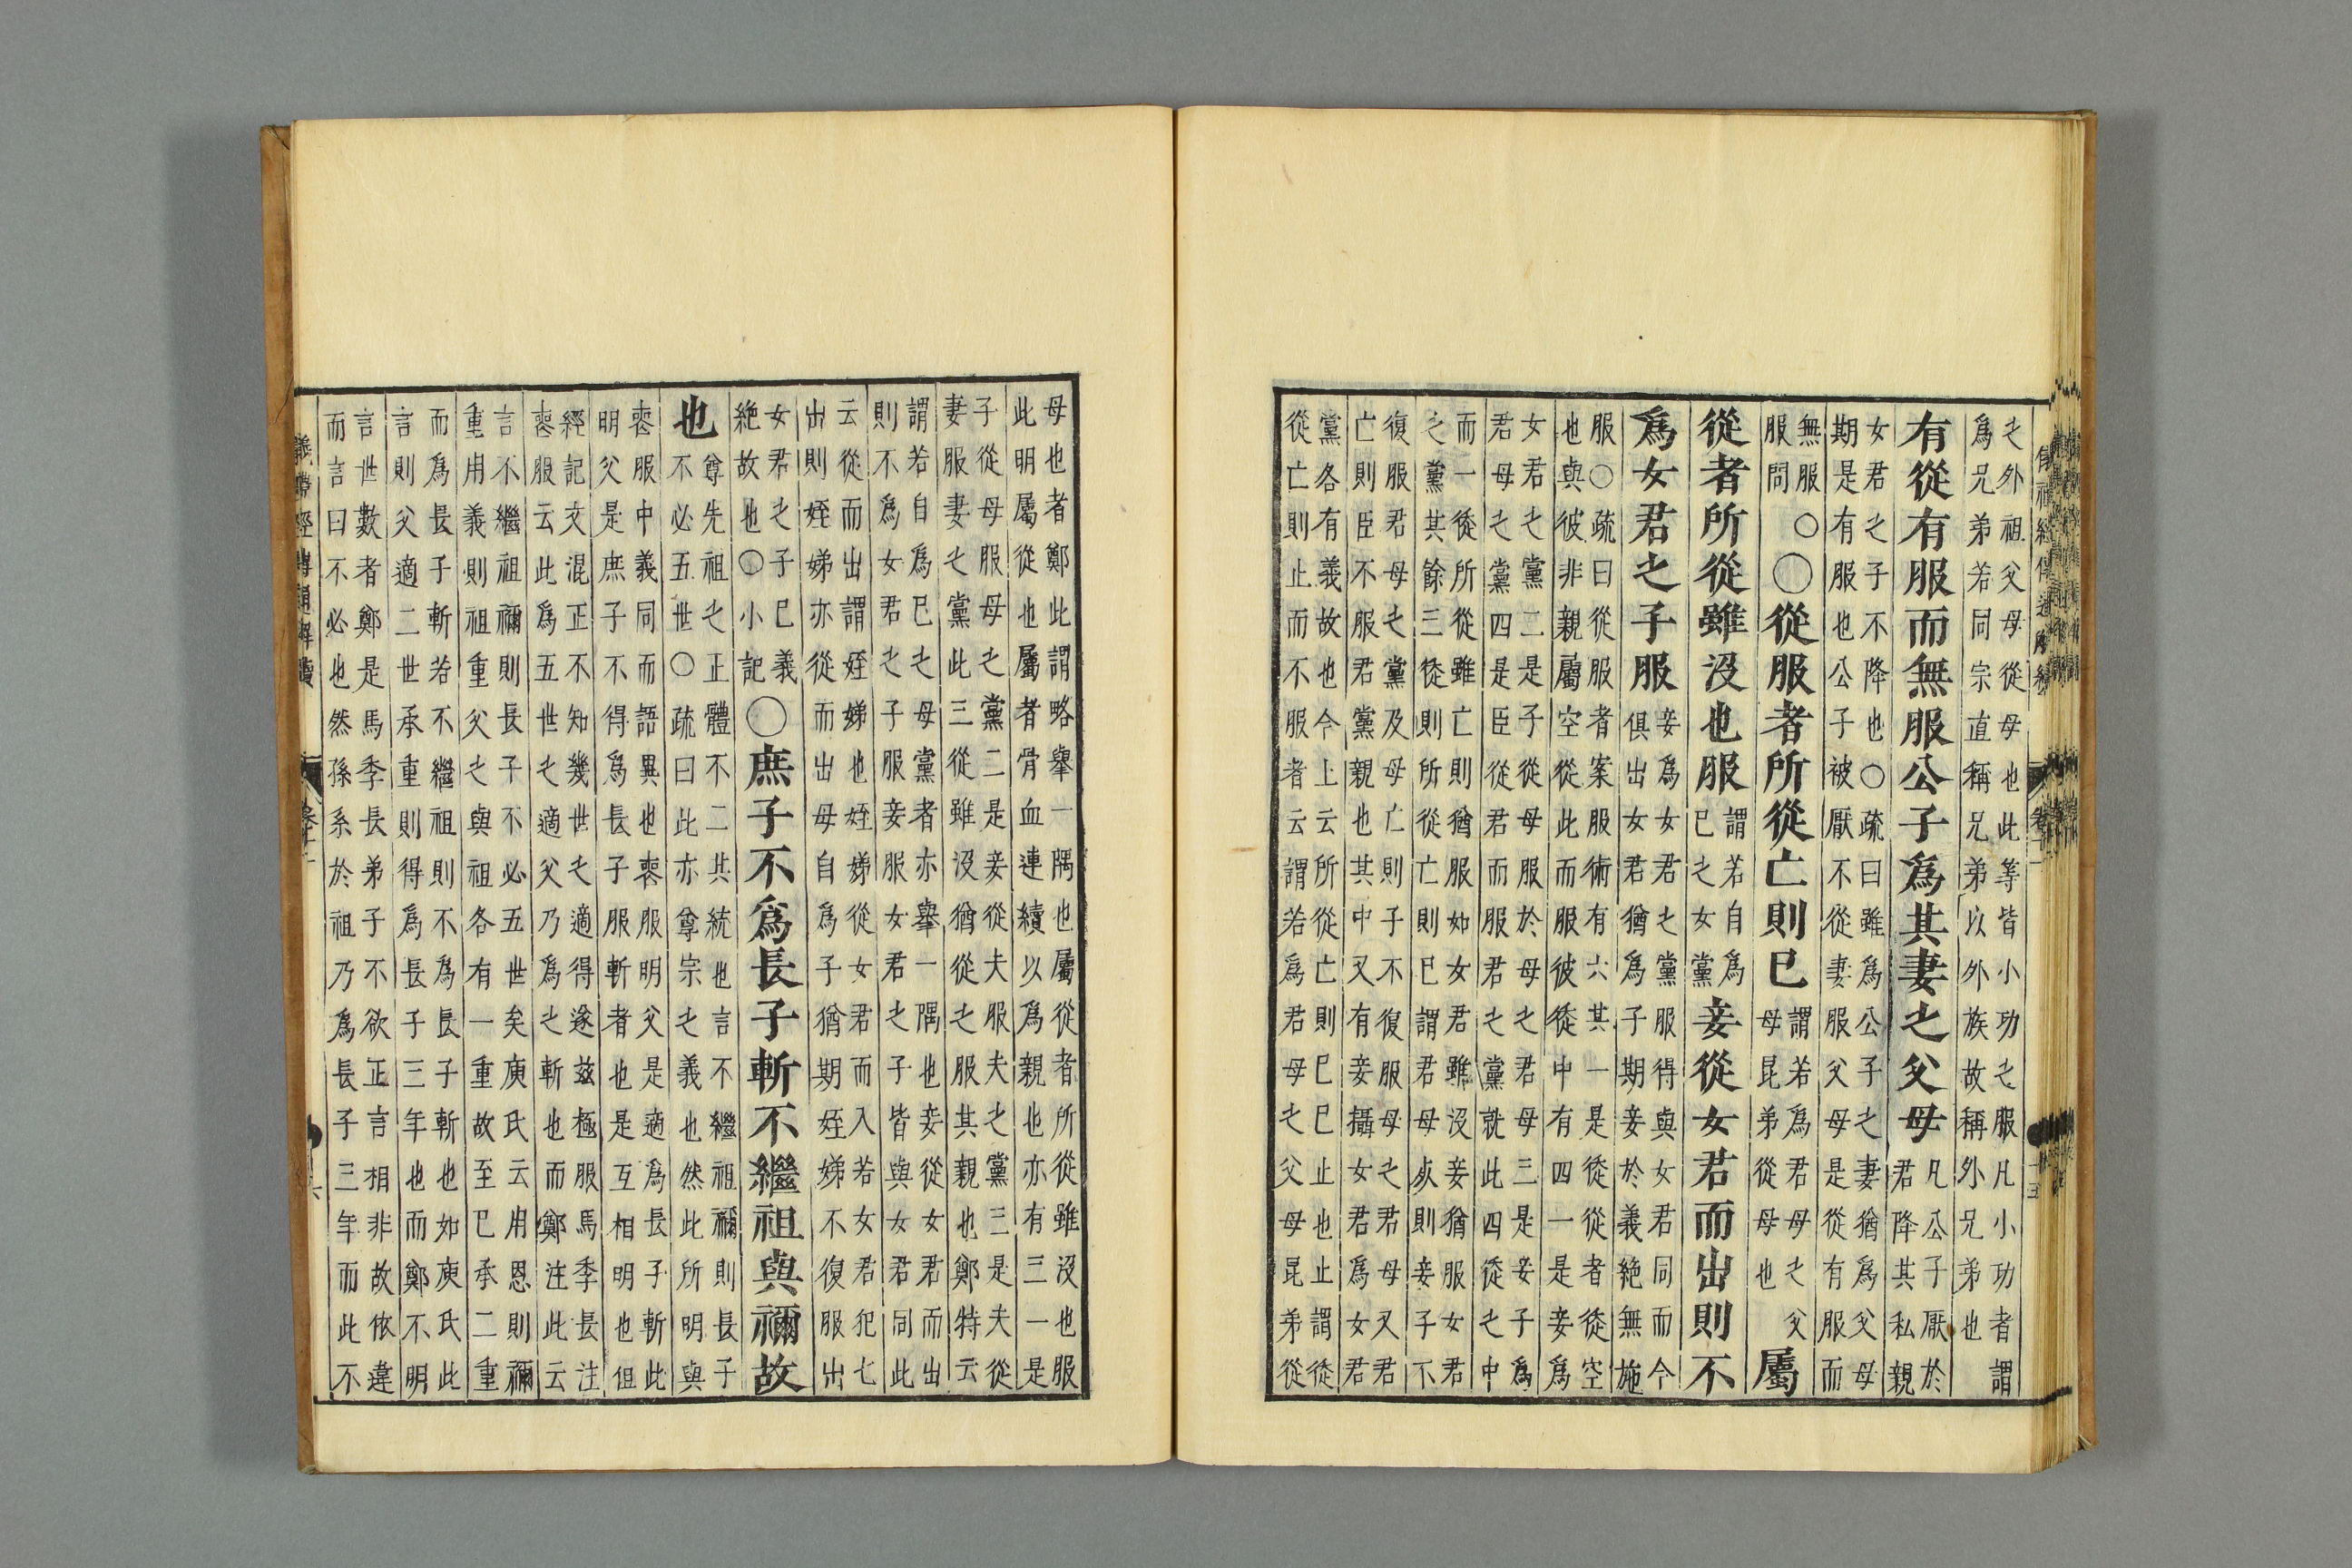 之外祖父母從母也此等皆小功之服凡小功者謂
爲兄弟若同宗直稱兄弟以外族故稱外兄弟也
有從有服而無服公子爲其妻之父母
凡公子厭於
君降其私親
女君之子不降也○疏曰雖爲公子之妻猶爲父母
期是有服也公子被厭不從妻服父母是從有服而
無服○
服問
○從服者所從亡則已
謂若爲君母之父
母昆弟從母也
屬
從者所從雖沒也服
謂若自爲
已之女黨
妾從女君而出則不
爲女君之子服
妾爲女君之黨服得與女君同而今
俱出女君猶爲子期妾於義絶無施
服○疏曰從服者案服術有六其一是徒從者徒空
也與彼非親屬空從此而服彼徒中有四一是妾爲
女君之黨二是子從母服於母之君母三是妾子爲
君母之黨四是臣從君而服君之黨就此四徒之中
而一徒所從雖亡則猶服如女君雖沒妾猶服女君
之黨其餘三徒則所從亡則已謂君母死則妾子不
復服君母之黨及母亡則子不復服母之君母又君
亡則臣不服君黨親也其中又有妾攝女君爲女君
黨各有義故也今上云所從亡則已已止也止謂徒
從亡則止而不服者云謂若爲君母之父母昆弟從
母也者鄭此謂略舉一隅也屬從者所從雖沒也服
此明屬從也屬者骨血連續以爲親也亦有三一是
子從母服母之黨二是妾從夫服夫之黨三是夫從
妻服妻之黨此三從雖沒猶從之服其親也鄭特云
謂若自爲已之母黨者亦舉一隅也妾從女君而出
則不爲女君之子服妾服女君之子皆與女君同此
云從而出謂姪娣也姪娣從女君而入若女君犯七
出則姪娣亦從而出母自爲子猶期姪娣不復服出
女君之子已義
絶故也○小記
○庶子不爲長子斬不繼祖與禰故
也
尊先祖之正體不二其統也言不繼祖禰則長子
不必五世○疏曰此亦尊宗之義也然此所明與
喪服中義同而語異也喪服明父是適爲長子斬此
明父是庶子不得爲長子服斬者也是互相明也但
經記文混正不知幾世之適得遂茲極服馬季長注
喪服云此爲五世之適父乃爲之斬也而鄭注此云
言不繼祖禰則長子不必五世矣庾氏云用恩則禰
重用義則祖重父之與祖各有一重故至已承二重
而爲長子斬若不繼祖則不爲長子斬也如庾氏此
言則父適二世承重則得爲長子三年也而鄭不明
言世數者鄭是馬季長弟子不欲正言相非故依違
而言曰不必也然孫系於祖乃爲長子三年而此不